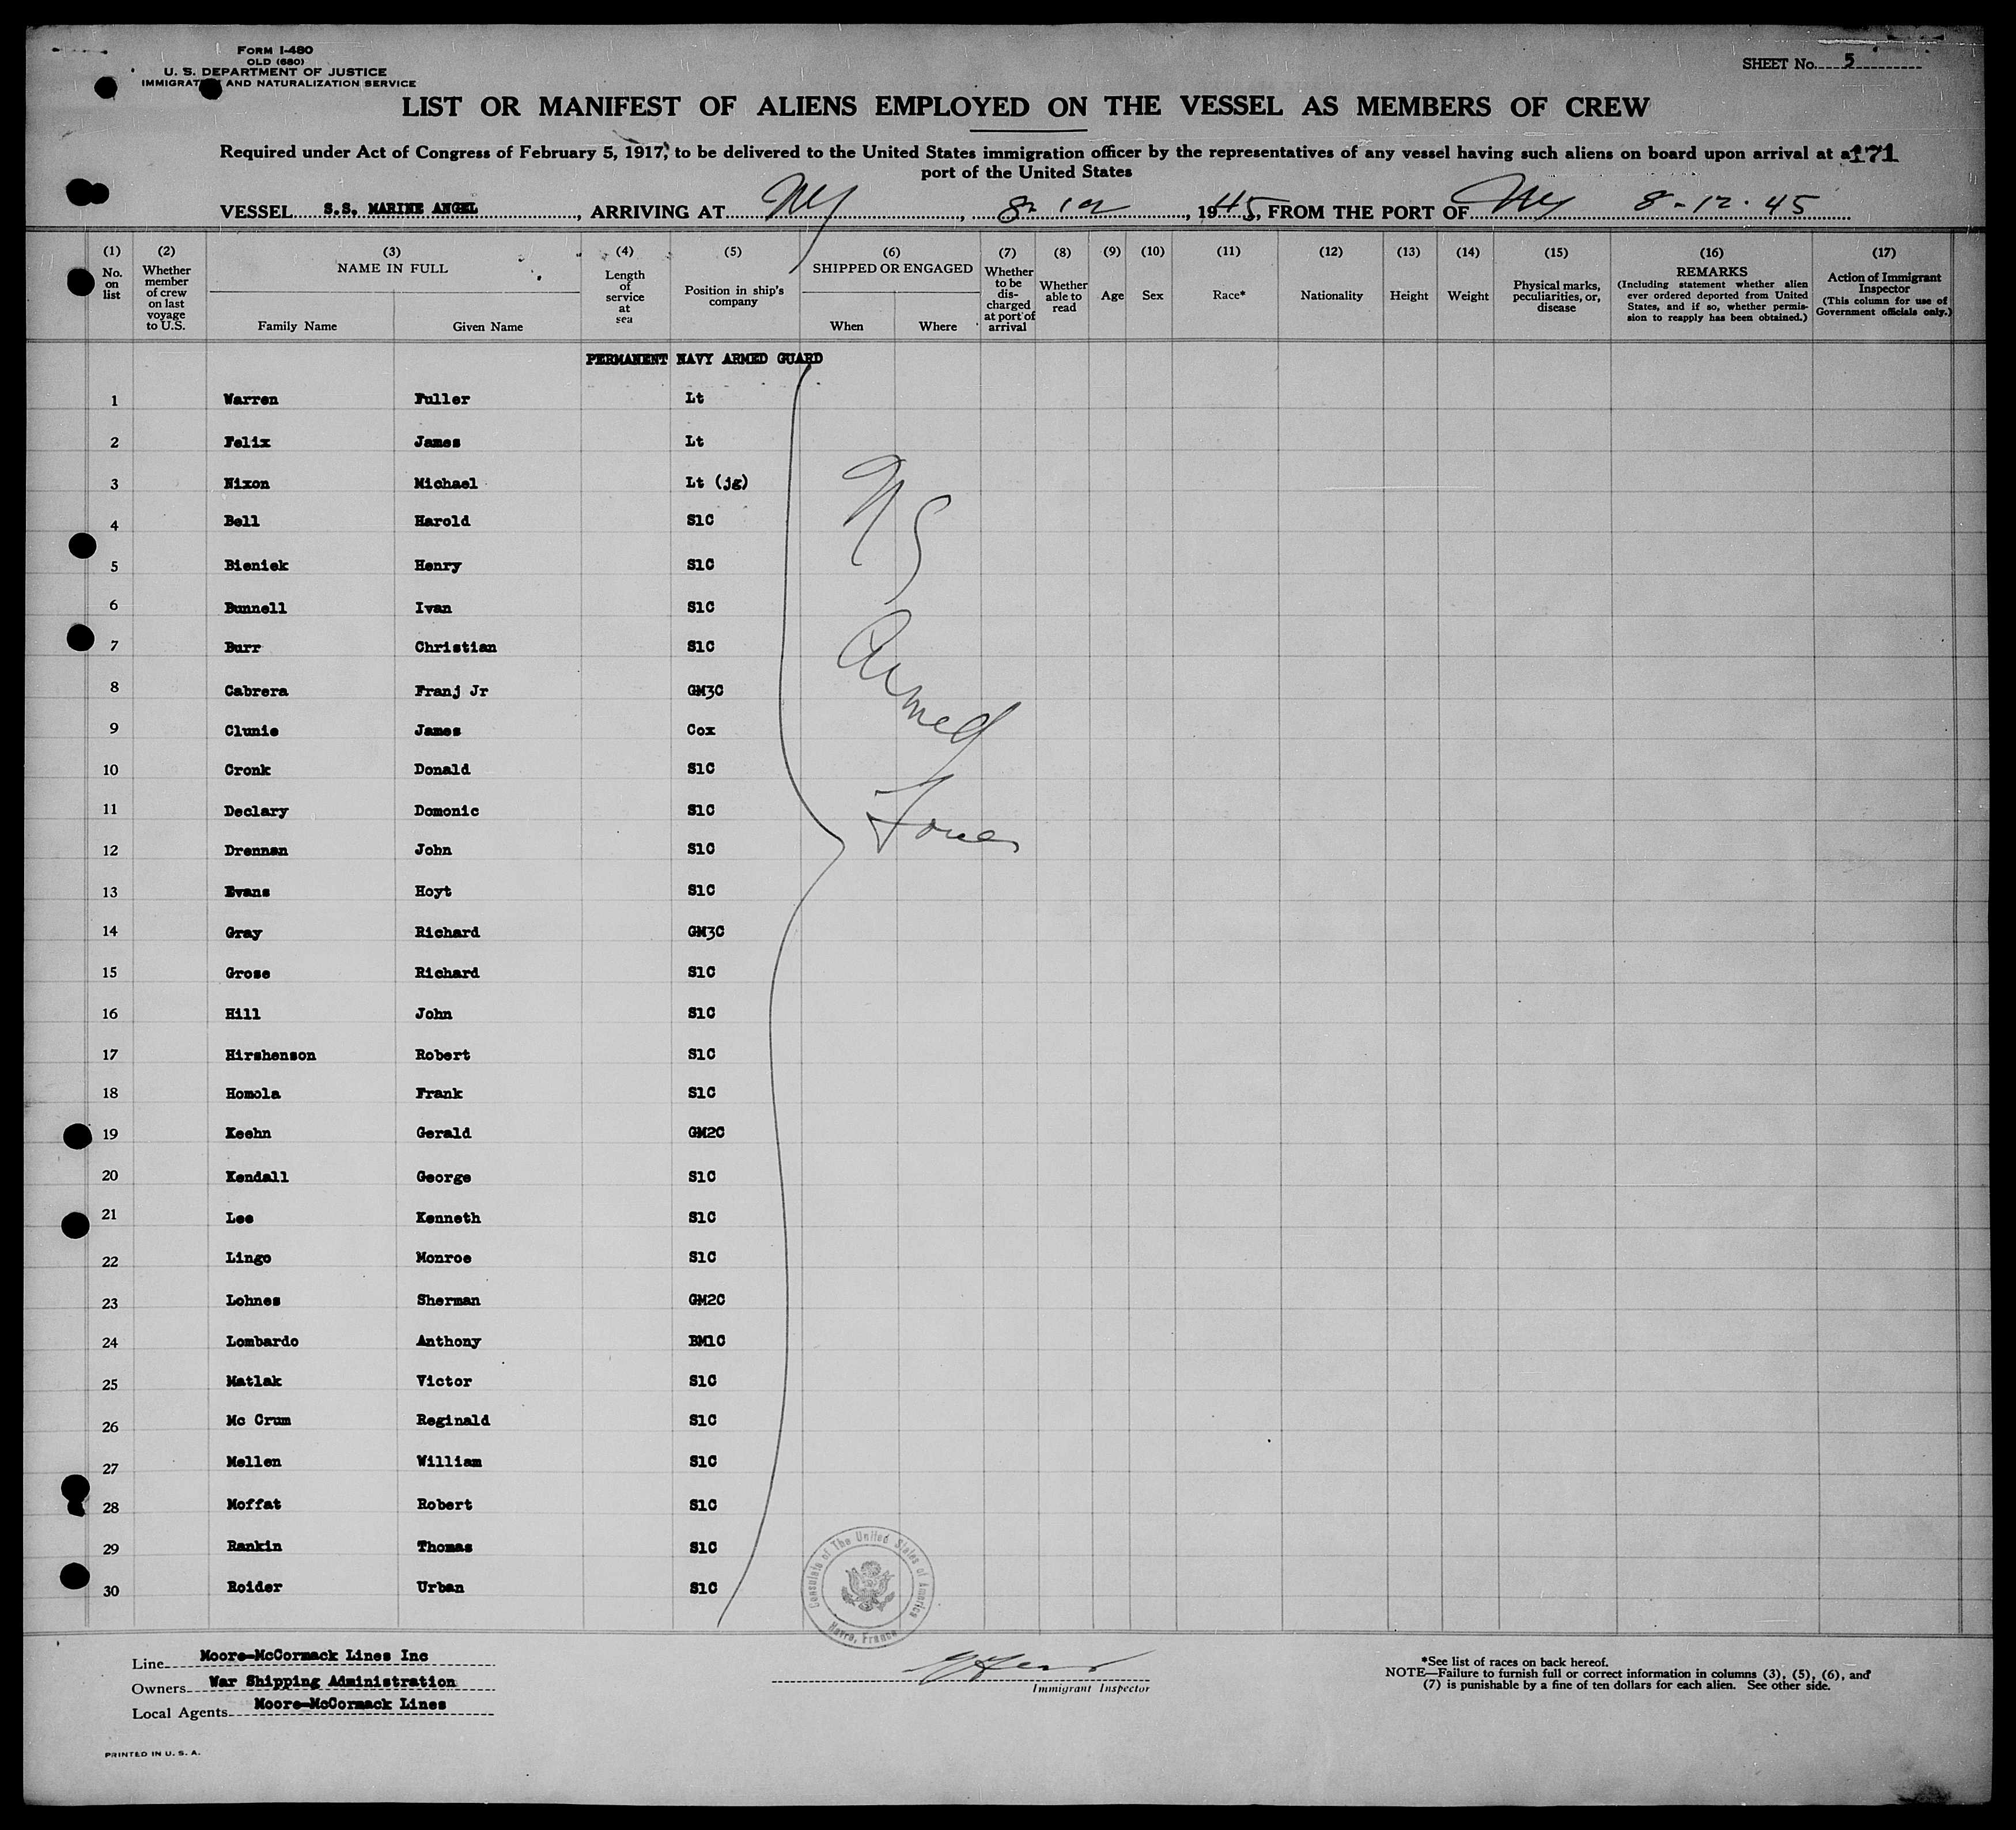 FORM I-480
OLD (680)
U. S. DEPARTMENT OF JUSTICE
IMMIGRAT AND NATURALIZATION SERVICE
SHEET No. 5
LIST OR MANIFEST OF ALIENS EMPLOYED ON THE VESSEL AS MEMBERS OF CREW
Required under Act of Congress of February 5, 1917, to be delivered to the United States immigration officer by the representatives of any vessel having such aliens on board upon arrival at a
171
port of the United States
VESSEL S.S. MARINE ANGEL, ARRIVING AT NY, 8-12, 1945, FROM THE PORT OF NY 8-12-45
(1) No. on list
(2) Whether member of crew on last voyage to U.S.
(3) NAME IN FULL Family Name Given Name
(4) Length of service at sea
(5) Position in ship's company
(6) SHIPPED OR ENGAGED When Where
(7) Whether to be dis-charged at port of arrival
(8) Whether able to read
(9) Age
(10) Sex
(11) Race*
(12) Nationality
(13) Height
(14) Weight
(15) Physical marks, peculiarities, or, disease
(16) REMARKS (Including statement whether alien ever ordered deported from United States, and if so, whether permis-sion to reapply has been obtained.)
(17) Action of Immigrant Inspector (This column for use of Government officials only.)
PERMANENT NAVY ARMED GUARD
1 Warren Fuller Lt
2 Felix James Lt
3 Nixon Michael Lt (jg)
4 Bell Harold S1C
5 Bieniek Henry S1C
6 Bunnell Ivan S1C
7 Burr Christian S1C
8 Cabrera Franj Jr GM3C
9 Clunie James Cox
10 Cronk Donald S1C
11 Declary Domonic S1C
12 Drennan John S1C
13 Evans Hoyt S1C
14 Gray Richard GM3C
15 Grose Richard S1C
16 Hill John S1C
17 Hirshenson Robert S1C
18 Homola Frank S1C
19 Keehn Gerald GM2C
20 Kendall George S1C
21 Lee Kenneth S1C
22 Lingo Monroe S1C
23 Lohnes Sherman GM2C
24 Lombardo Anthony BM1C
25 Matlak Victor S1C
26 Mc Crum Reginald S1C
27 Mellen William S1C
28 Moffat Robert S1C
29 Rankin Thomas S1C
30 Roider Urban S1C
Armed
Forces
Consulate of The United States of America
Havre, France
Line Moore-McCormack Lines Inc
Owners War Shipping Administration
Local Agents Moore-McCormack Lines
Immigrant Inspector
*See list of races on back hereof.
NOTE—Failure to furnish full or correct information in columns (3), (5), (6), and
(7) is punishable by a fine of ten dollars for each alien. See other side.
PRINTED IN U. S. A.